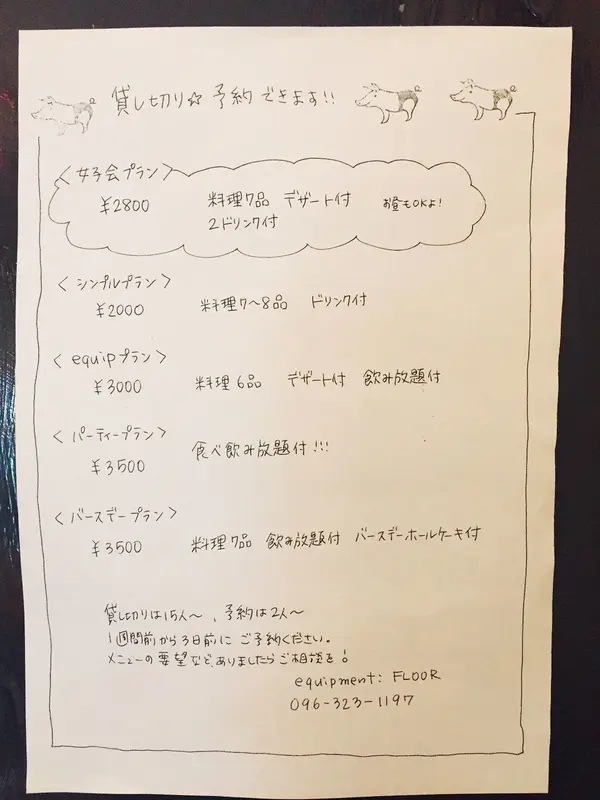 貸し切り☆予約できます!!
<女子会プラン>
¥2800 料理7品 デザート付 お昼もOKよ!
2ドリンク付
<シンプルプラン>
¥2000 料理7〜8品 ドリンク付
<equipプラン>
¥3000 料理6品 デザート付 飲み放題付
<パーティープラン>
¥3500 食べ飲み放題付!!!
<バースデープラン>
¥3500 料理7品 飲み放題付 バースデーホールケーキ付
貸し切りは15人〜、予約は2人〜
1週間前から3日前にご予約ください。
メニューの要望など、ありましたらご相談を!
equipment: FLOOR
096-323-1197